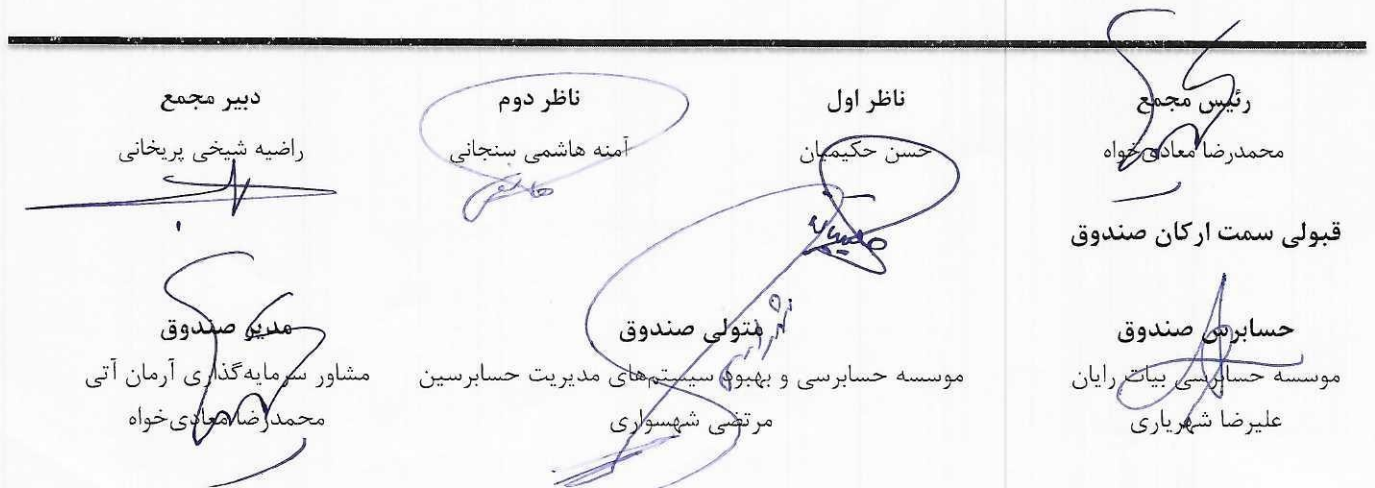 رئیس مجمع
محمدرضا معادی‌خواه
ناظر اول
حسن حکیمیان
ناظر دوم
آمنه هاشمی سنجانی
دبیر مجمع
راضیه شیخی پریخانی
قبولی سمت ارکان صندوق
حسابرس صندوق
موسسه حسابرسی بیات رایان
علیرضا شهریاری
متولی صندوق
موسسه حسابرسی و بهبود سیستم‌های مدیریت حسابرسین
مرتضی شهسواری
مدیر صندوق
مشاور سرمایه‌گذاری آرمان آتی
محمدرضا معادی‌خواه